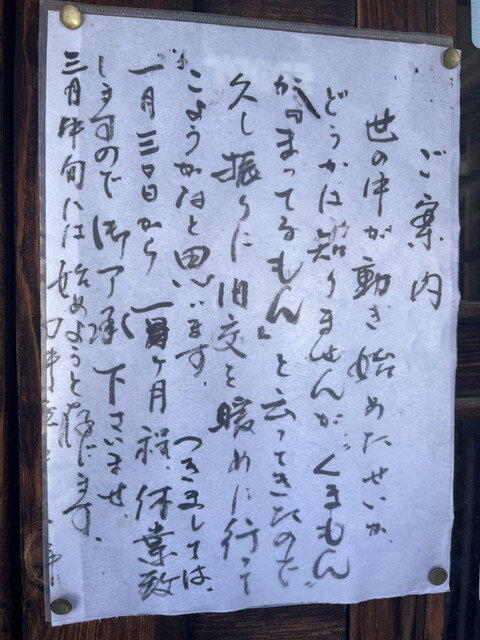 ご案内
世の中が動き始めたせいか、
どうかは知りませんが、くまもん
が『まってるもん』と云ってきたので
久し振りに旧交を暖めに行って
こようかなと思います。つきましては、
一月三日から一ヶ月程、休業致
しますので御了承下さいませ
三月中旬には始めようと存じます。